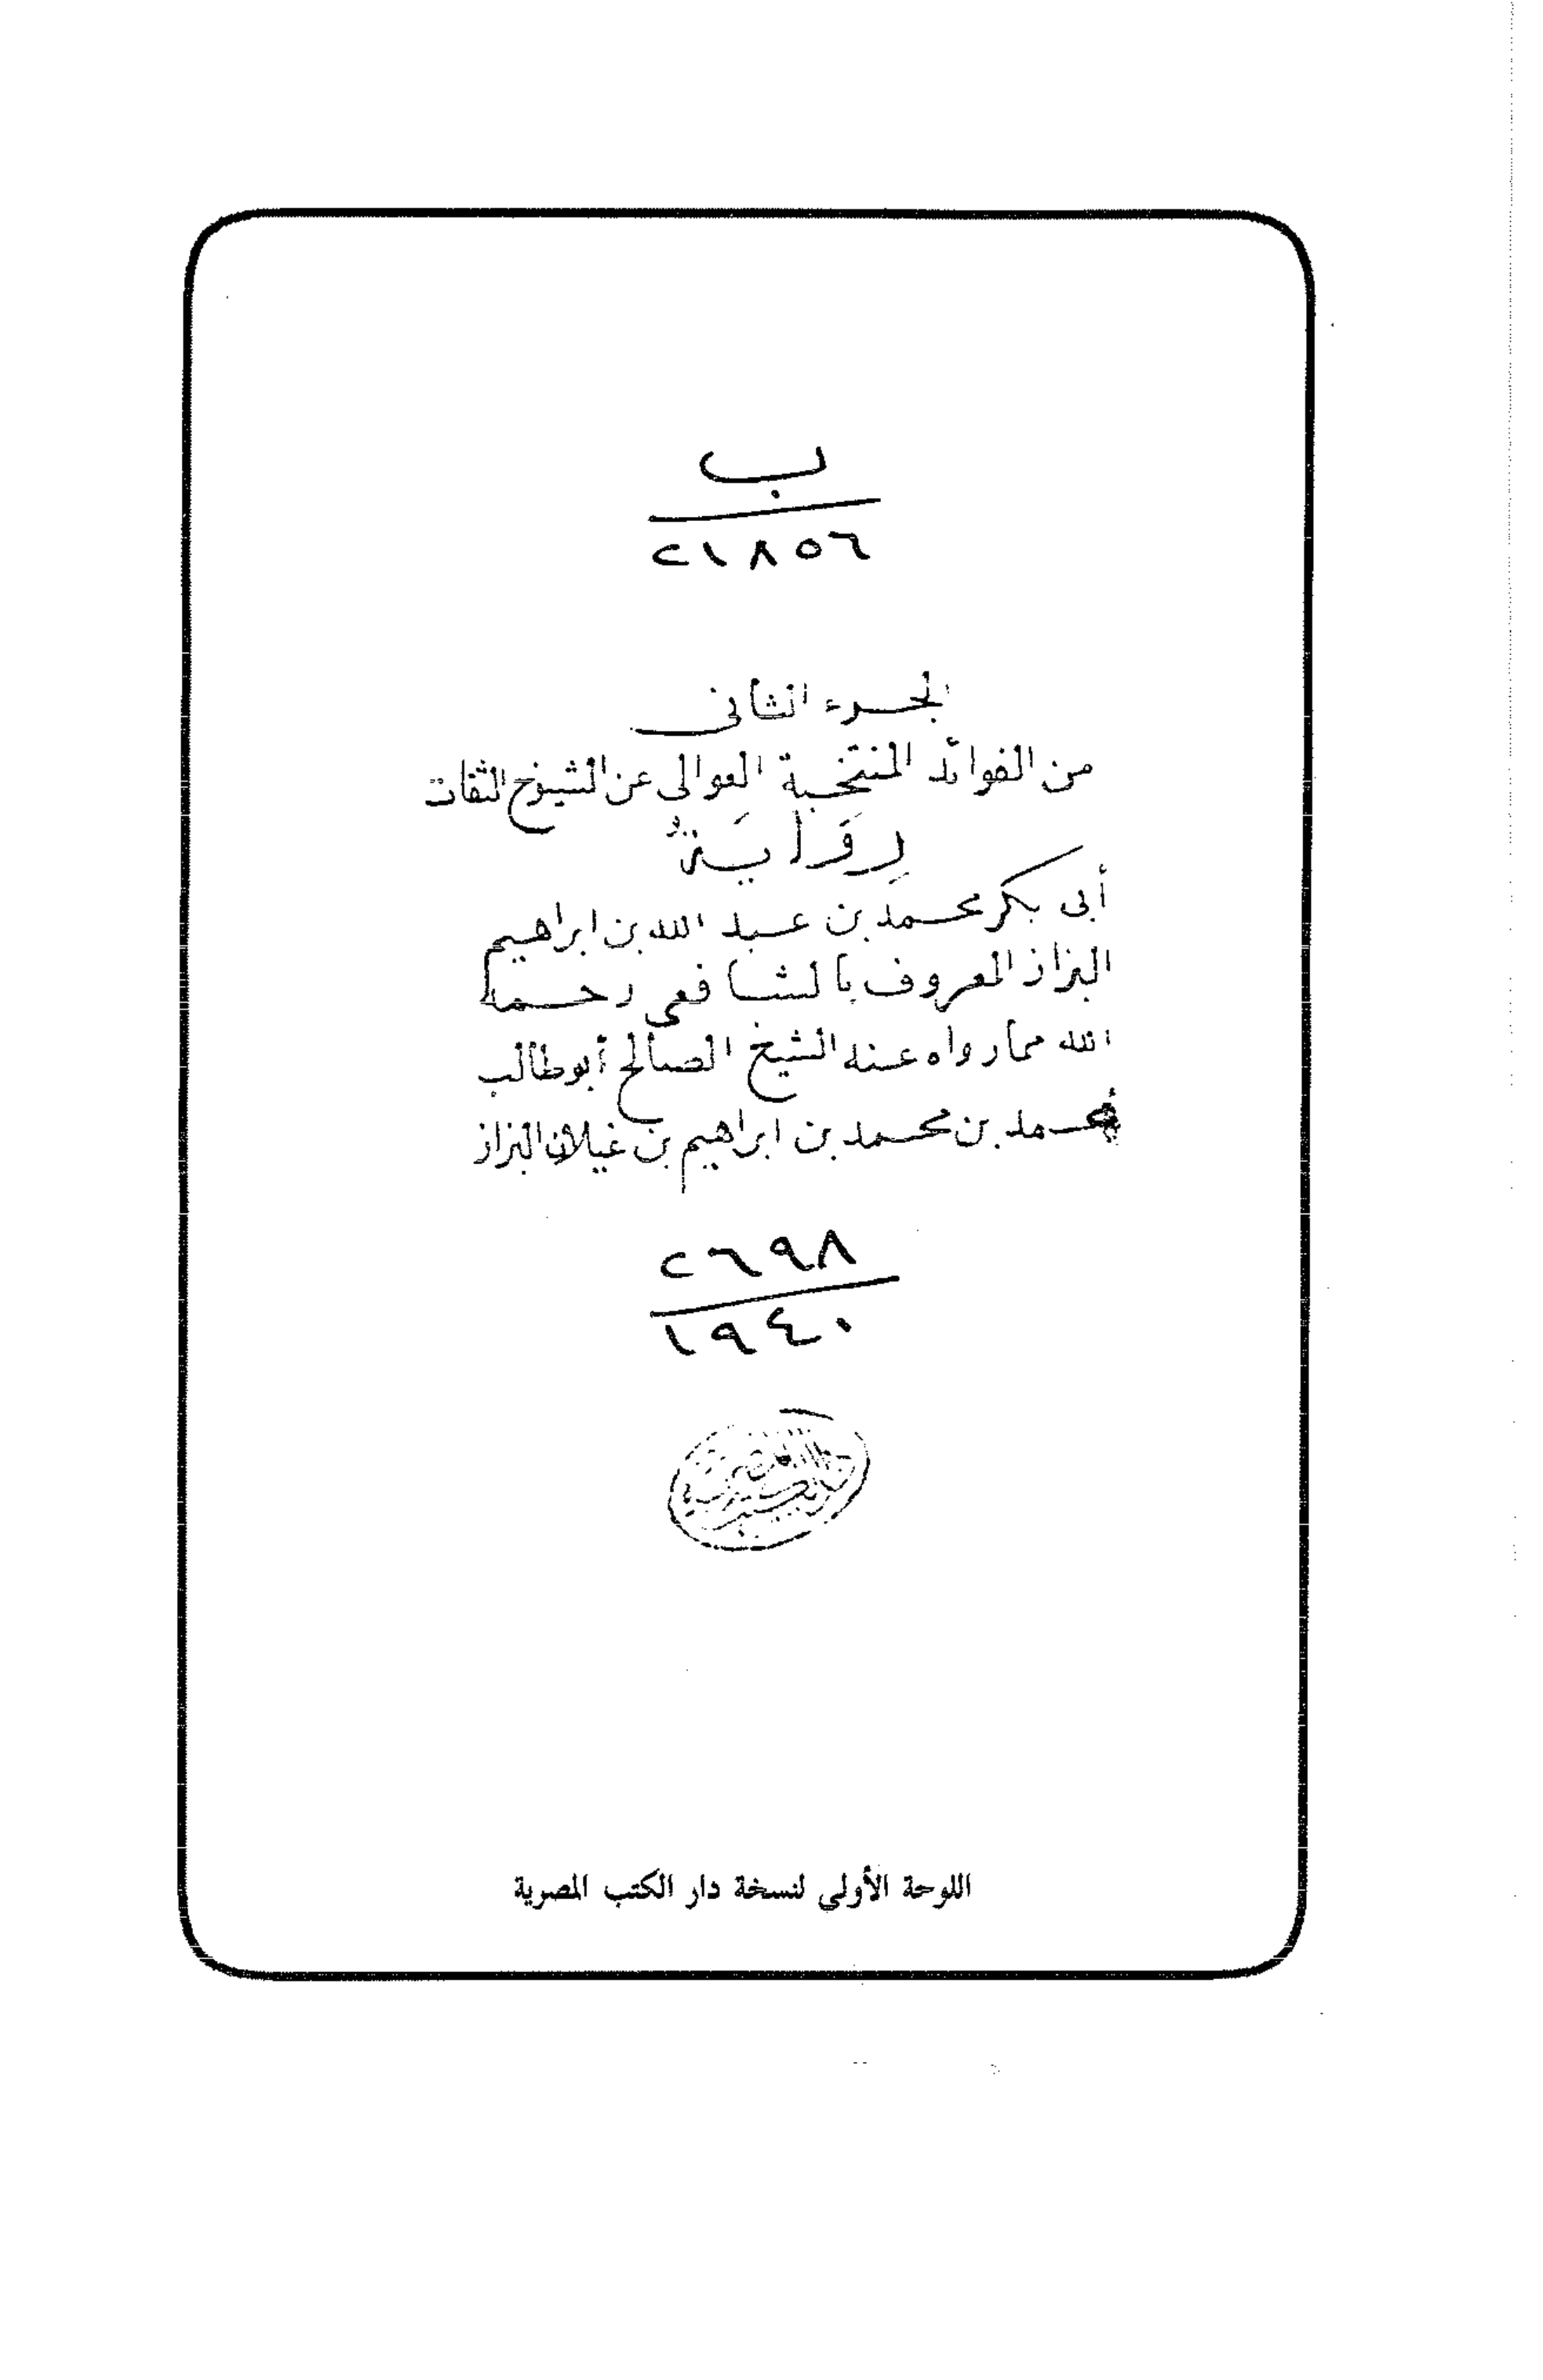 ب
٢١٨٥٦
الجزء الثانى
من الفوائد المنتخبة العوالى عن الشيوخ الثقات
رِوَايَةُ
أبى بكر محمد بن عبد الله بن ابراهيم
البزاز المعروف بالشافعى رحمه
الله ممارواه عنه الشيخ الصالح أبو طالب
محمد بن محمد بن ابراهيم بن غيلان البزاز
٢٦٩٨
١٩٤٠
اللوحة الأولى لنسخة دار الكتب المصرية